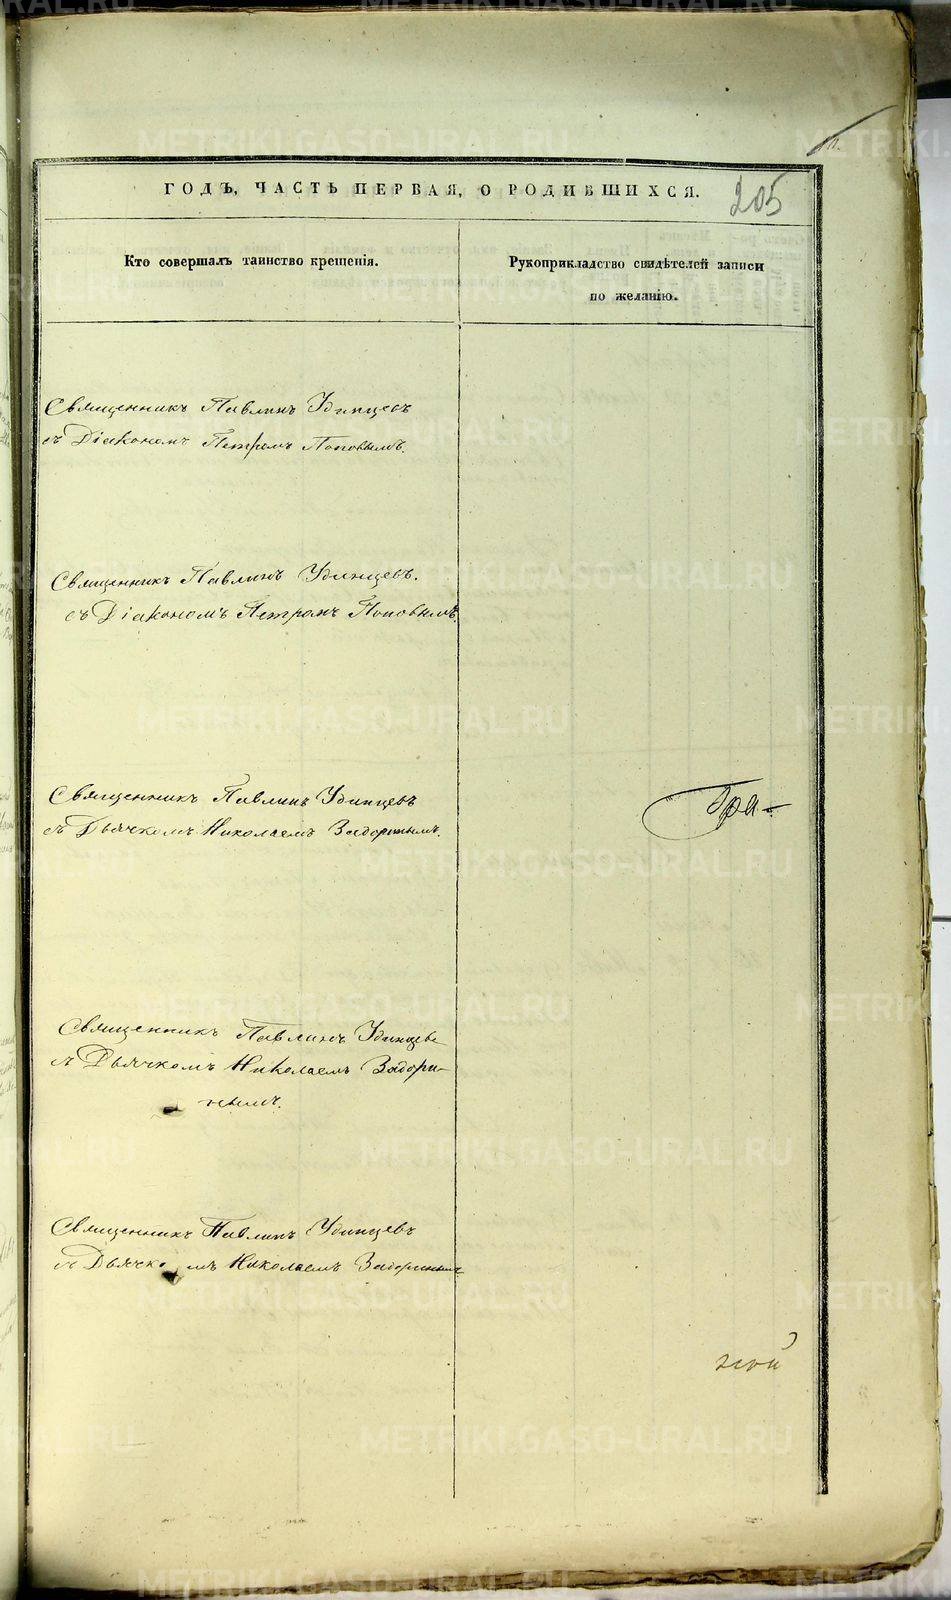 ГОДЪ, ЧАСТЬ ПЕРВАЯ, О РОДИВШИХСЯ.
205
Кто совершалъ таинство крещенія.
Рукоприкладство свидѣтелей записи
по желанію.
Священникъ Павлинъ Удинцевъ
съ Діакономъ Петромъ Поповымъ.
Священникъ Павлинъ Удинцевъ.
съ Діакономъ Петромъ Поповымъ
Священникъ Павлинъ Удинцевъ
съ Дьячкомъ Николаемъ Задоринымъ.
Гра-
Священникъ Павлинъ Удинцевъ
съ Дьячкомъ Николаемъ Задори-
нымъ.
Священникъ Павлинъ Удинцевъ
съ Дьячкомъ Николаемъ Задоринымъ
METRIKI.GASO-URAL.RU